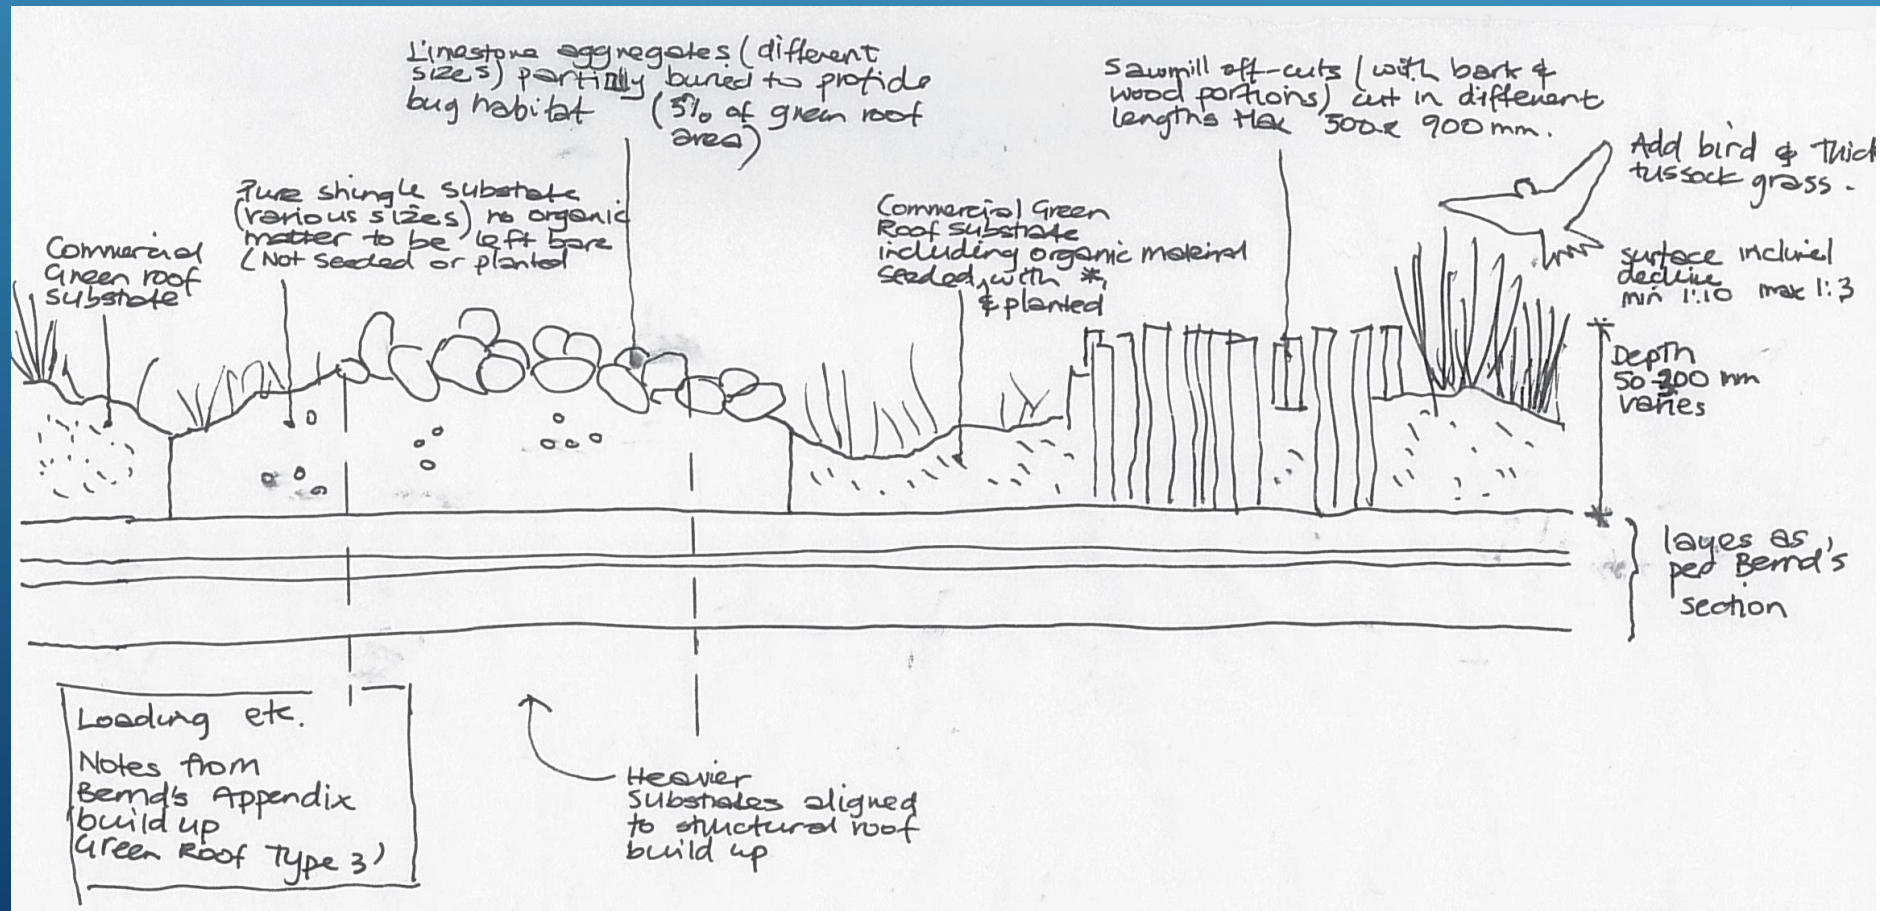 Limestone aggregates (different
sizes) partially buried to protide
bug habitat (5% of green roof
area)
Sawmill off-cuts (with bark &
wood portioins) cut in different
lengths Max 500 x 900 mm.
Add bird & Thick
tussock grass.
Pure shingle substrate
(various sizes) no organic
matter to be left bare
(Not seeded or planted
Commercial Green
Roof substrate
including organic material
seeded, with *,
& planted
Commercial
Green roof
substrate
surface inclined
decline
min 1:10 max 1:3
Depth
50-300 mm
varies
layes as
per Bernd's
section
Loading etc.
Notes from
Bernd's Appendix
build up
Green Roof Type 3)
Heavier
substrates aligned
to structural roof
build up